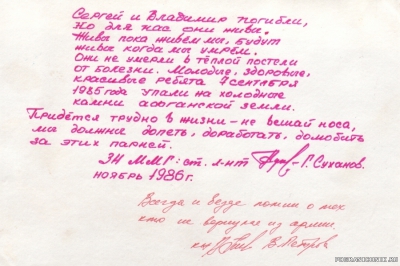 Сергей и Владимир погибли,
Но для нас они живы.
Живы пока живём мы, будут
живы когда мы умрём.
Они не умерли в тёплой постели
от болезни. Молодые, здоровые,
красивые ребята 7 сентября
1985 года упали на холодные
камни афганской земли.
Придётся трудно в жизни – не вешай носа,
мы должны допеть, доработать, домобить
за этих парней.
ЗН ММГ: ст. л-нт Г. Суханов.
ноябрь 1986 г.
Всегда и везде помни о тех
кто не вернулся из армии.
В. Петров
POGRANICHNIK.RU